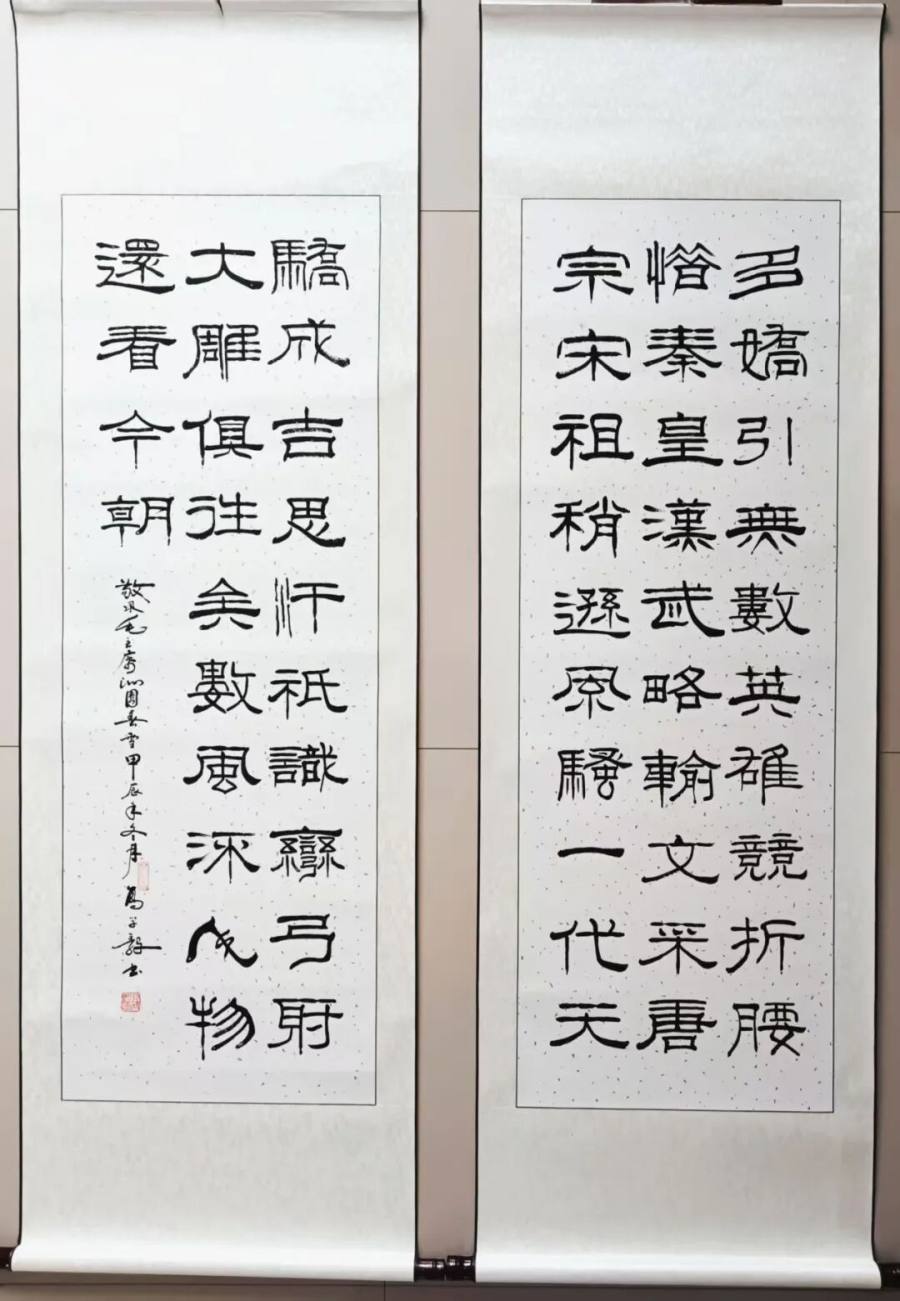 多嬌引無數英雄競折腰
惜秦皇漢武略輸文采唐
宗宋祖稍遜風騷一代天
驕成吉思汗祇識彎弓射
大雕俱往矣數風流人物
還看今朝
敬录毛主席沁園春雪甲辰年冬月